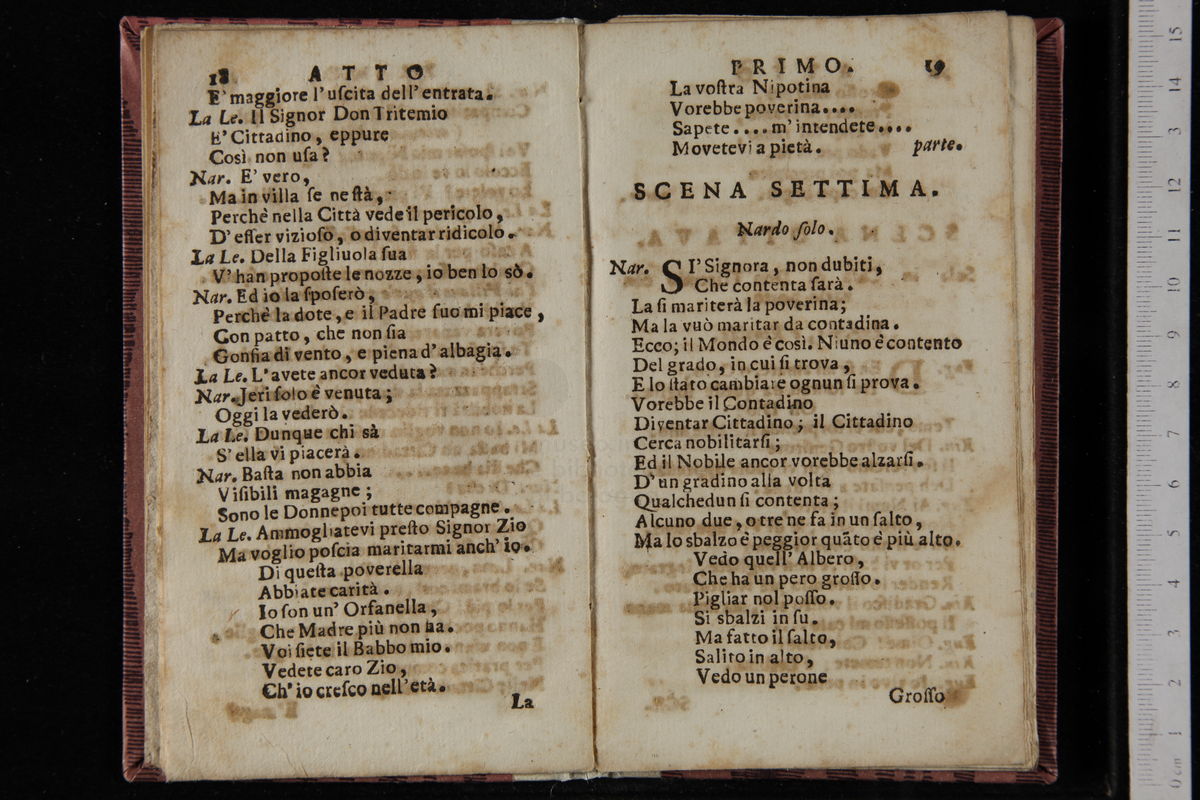 18 ATTO
E' maggiore l'uſcita dell'entrata.
La Le. Il Signor Don Tritemio
E' Cittadino, eppure
Così non uſa?
Nar. E' vero,
Ma in villa ſe ne ſtà,
Perchè nella Città vede il pericolo,
D'eſſer vizioſo, o diventar ridicolo.
La Le. Della Figliuola ſua
V'han propoſte le nozze, io ben lo sò.
Nar. Ed io la ſpoſerò,
Perchè la dote, e il Padre ſuo mi piace,
Con patto, che non ſia
Gonfia di vento, e piena d'albagia.
La Le. L'avete ancor veduta?
Nar. Jeri ſolo è venuta;
Oggi la vederò.
La Le. Dunque chi sà
S'ella vi piacerà.
Nar. Baſta non abbia
Viſibili magagne;
Sono le Donne poi tutte compagne.
La Le. Ammogliatevi preſto Signor Zio
Ma voglio poſcia maritarmi anch'io.
Di queſta poverella
Abbiate carità.
Io ſon un' Orfanella,
Che Madre più non ha.
Voi ſiete il Babbo mio.
Vedete caro Zio,
Ch'io creſco nell'età.
La
PRIMO. 19
La voſtra Nipotina
Vorebbe poverina....
Sapete.... m'intendete....
Movetevi a pietà. parte.
SCENA SETTIMA.
Nardo ſolo.
Nar. SI' Signora, non dubiti,
Che contenta ſarà.
La ſi mariterà la poverina;
Ma la vuò maritar da contadina.
Ecco; il Mondo è così. Niuno è contento
Del grado, in cui ſi trova,
E lo ſtato cambiare ognun ſi prova.
Vorebbe il Contadino
Diventar Cittadino; il Cittadino
Cerca nobilitarſi;
Ed il Nobile ancor vorebbe alzarſi.
D'un gradino alla volta
Qualchedun ſi contenta;
Alcuno due, o tre ne fa in un ſalto,
Ma lo sbalzo è peggior quãto è più alto.
Vedo quell' Albero,
Che ha un pero groſſo.
Pigliar nol poſſo.
Si sbalzi in ſu.
Ma fatto il ſalto,
Salito in alto,
Vedo un perone
Groſſo
0 cm 1 2 3 4 5 6 7 8 9 10 11 12 13 14 15